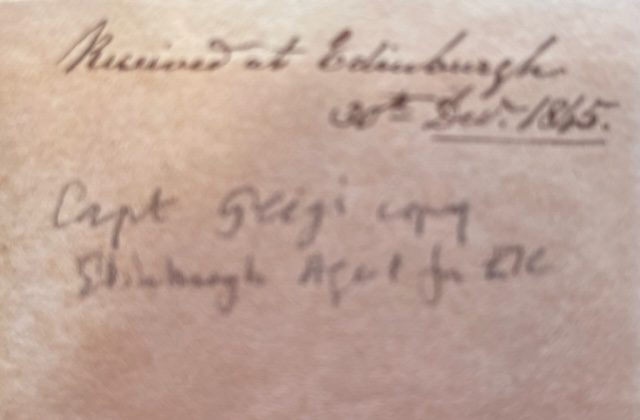 Received at Edinburgh
30th Decr. 1845.
Capt Gleig's copy
Edinburgh Agent for EIC